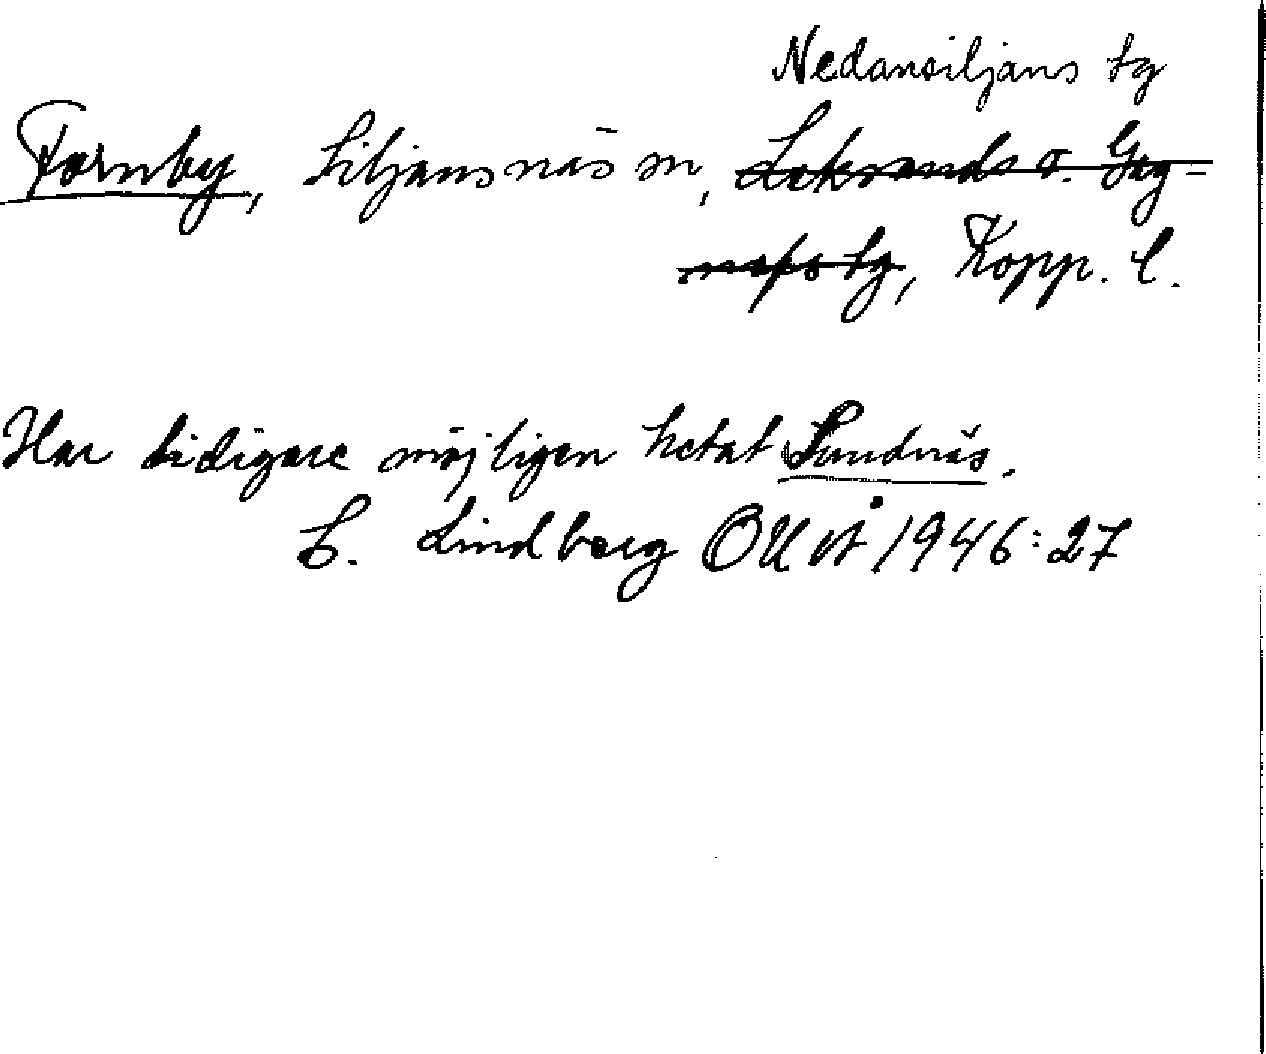 Nedansiljans tg
Fornby, Siljansnäs sn, Leksands o. Gag-
nefs tg, Kopp. l.
Har tidigare möjligen hetat Sundnäs.
Lindberg OUÅ 1946:27